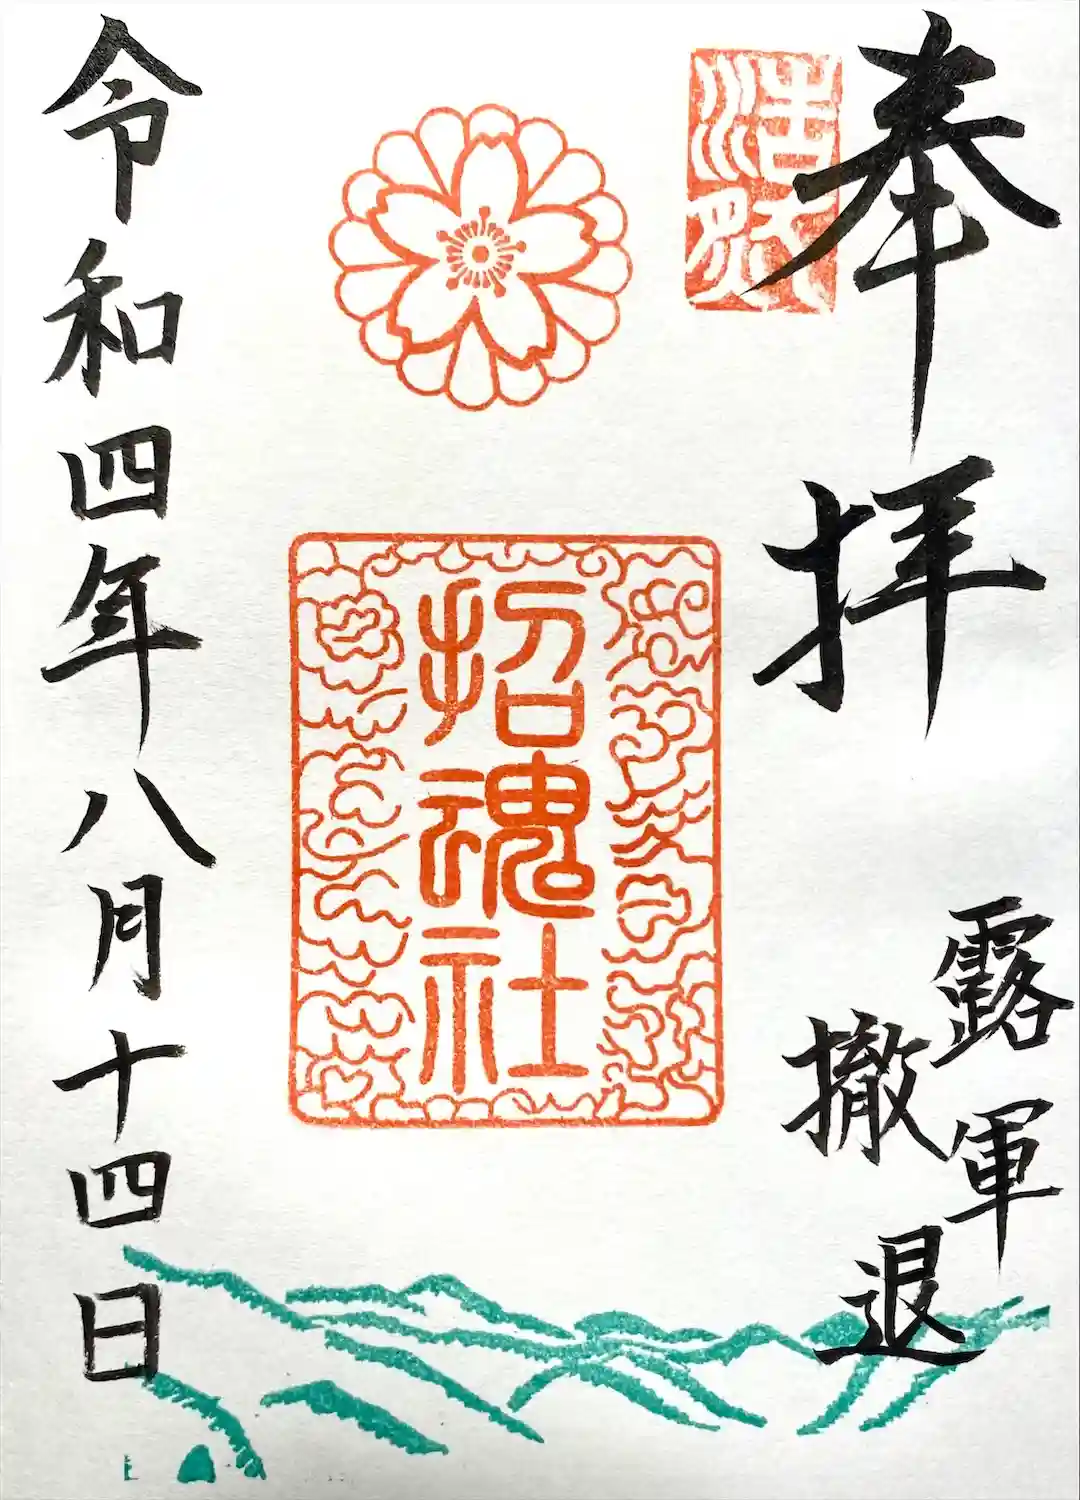 奉拝
露軍
撤退
招魂社
令和四年八月十四日